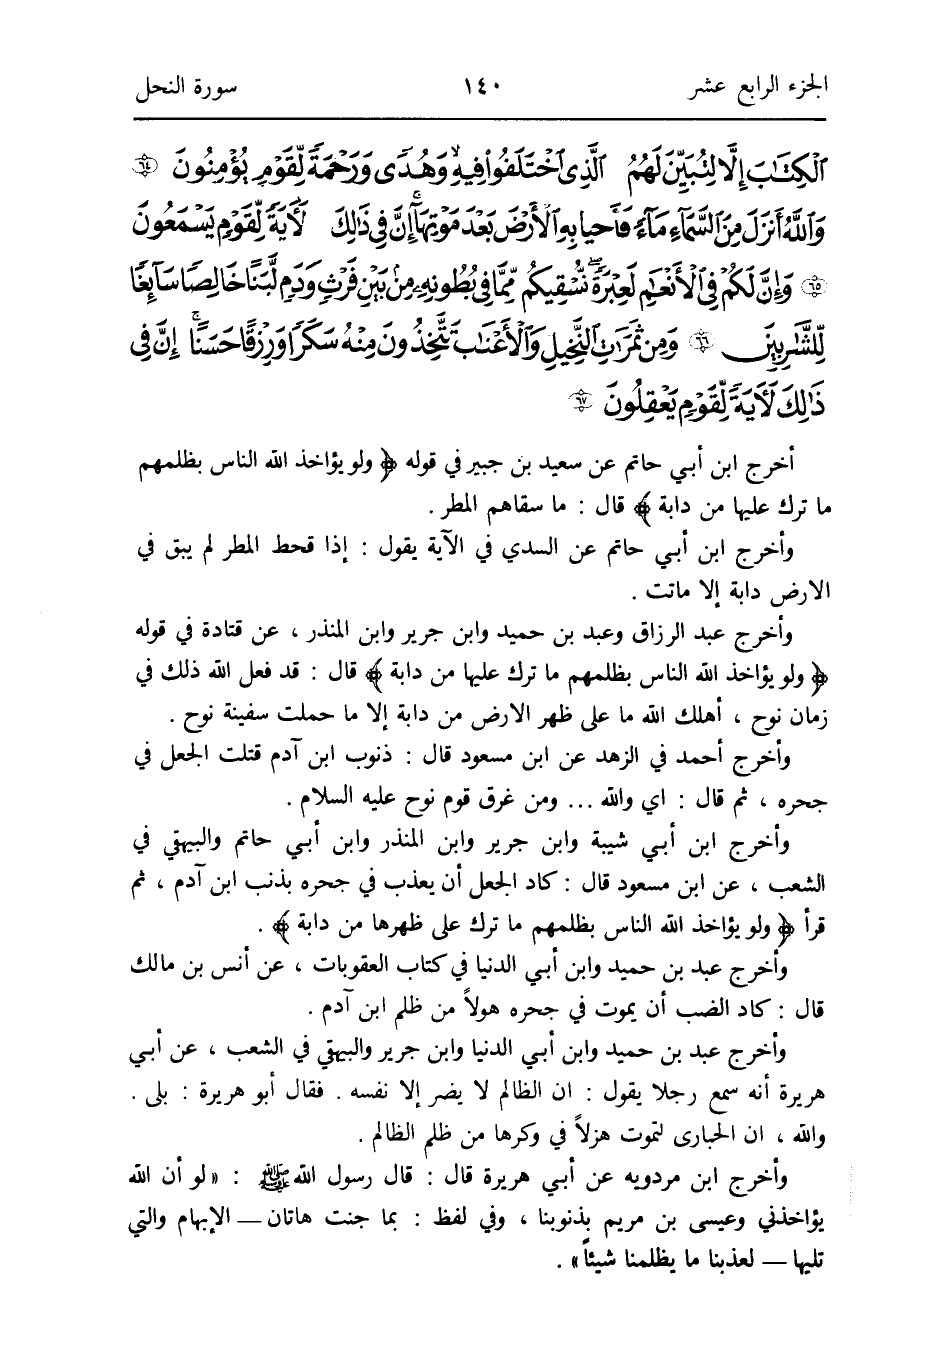 الجزء الرابع عشر ١٤٠ سورة النحل
ٱلْكِتَٰبَ إِلَّا لِتُبَيِّنَ لَهُمُ ٱلَّذِى ٱخْتَلَفُوا۟ فِيهِ ۙ وَهُدًى وَرَحْمَةً لِّقَوْمٍ يُؤْمِنُونَ ٦٤
وَٱللَّهُ أَنزَلَ مِنَ ٱلسَّمَآءِ مَآءً فَأَحْيَا بِهِ ٱلْأَرْضَ بَعْدَ مَوْتِهَآ ۚ إِنَّ فِى ذَٰلِكَ لَآيَةً لِّقَوْمٍ يَسْمَعُونَ
٦٥ وَإِنَّ لَكُمْ فِى ٱلْأَنْعَٰمِ لَعِبْرَةً ۖ نُّسْقِيكُم مِّمَّا فِى بُطُونِهِۦ مِنۢ بَيْنِ فَرْثٍ وَدَمٍ لَّبَنًا خَالِصًا سَآئِغًا
لِّلشَّٰرِبِينَ ٦٦ وَمِن ثَمَرَٰتِ ٱلنَّخِيلِ وَٱلْأَعْنَٰبِ تَتَّخِذُونَ مِنْهُ سَكَرًا وَرِزْقًا حَسَنًا ۗ إِنَّ فِى
ذَٰلِكَ لَآيَةً لِّقَوْمٍ يَعْقِلُونَ ٦٧
أخرج ابن أبي حاتم عن سعيد بن جبير في قوله ﴿ ولو يؤاخذ الله الناس بظلمهم
ما ترك عليها من دابة ﴾ قال : ما سقاهم المطر .
وأخرج ابن أبي حاتم عن السدي في الآية يقول : إذا قحط المطر لم يبق في
الارض دابة إلا ماتت .
وأخرج عبد الرزاق وعبد بن حميد وابن جرير وابن المنذر ، عن قتادة في قوله
﴿ ولو يؤاخذ الله الناس بظلمهم ما ترك عليها من دابة ﴾ قال : قد فعل الله ذلك في
زمان نوح ، أهلك الله ما على ظهر الارض من دابة إلا ما حملت سفينة نوح .
وأخرج أحمد في الزهد عن ابن مسعود قال : ذنوب ابن آدم قتلت الجعل في
جحره ، ثم قال : اي والله ... ومن غرق قوم نوح عليه السلام .
وأخرج ابن أبي شيبة وابن جرير وابن المنذر وابن أبي حاتم والبيهقي في
الشعب ، عن ابن مسعود قال : كاد الجعل أن يعذب في جحره بذنب ابن آدم ، ثم
قرأ ﴿ ولو يؤاخذ الله الناس بظلمهم ما ترك على ظهرها من دابة ﴾ .
وأخرج عبد بن حميد وابن أبي الدنيا في كتاب العقوبات ، عن أنس بن مالك
قال : كاد الضب أن يموت في جحره هولاً من ظلم ابن آدم .
وأخرج عبد بن حميد وابن أبي الدنيا وابن جرير والبيهقي في الشعب ، عن أبي
هريرة أنه سمع رجلا يقول : ان الظالم لا يضر إلا نفسه . فقال أبو هريرة : بلى .
والله ، ان الحبارى لتموت هزلاً في وكرها من ظلم الظالم .
وأخرج ابن مردويه عن أبي هريرة قال : قال رسول الله ﷺ : « لو أن الله
يؤاخذني وعيسى بن مريم بذنوبنا ، وفي لفظ : بما جنت هاتان — الإبهام والتي
تليها — لعذبنا ما يظلمنا شيئاً » .